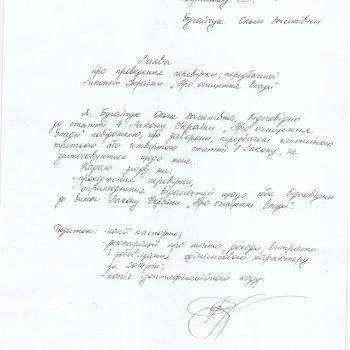 Бугайчук Ольги Василівни
Заява
про проведення перевірки, передбаченої
Законом України „Про очищення влади"
Я, Бугайчук Ольга Василівна, відповідно
до статті 4 Закону України „Про очищення
влади" повідомляю, що заборони, передбачені частиною
третьою або четвертою статті 1 Закону, не
застосовуються щодо мене.
Надаю згоду на:
- проходження перевірки;
- оприлюднення відомостей щодо себе відповідно
до вимог Закону України „Про очищення влади".
Додаток: - копії паспорта;
- декларації про майно, доходи, витрати
і зобов'язання фінансового характеру
за 2014 рік;
- копія ідентифікаційного коду